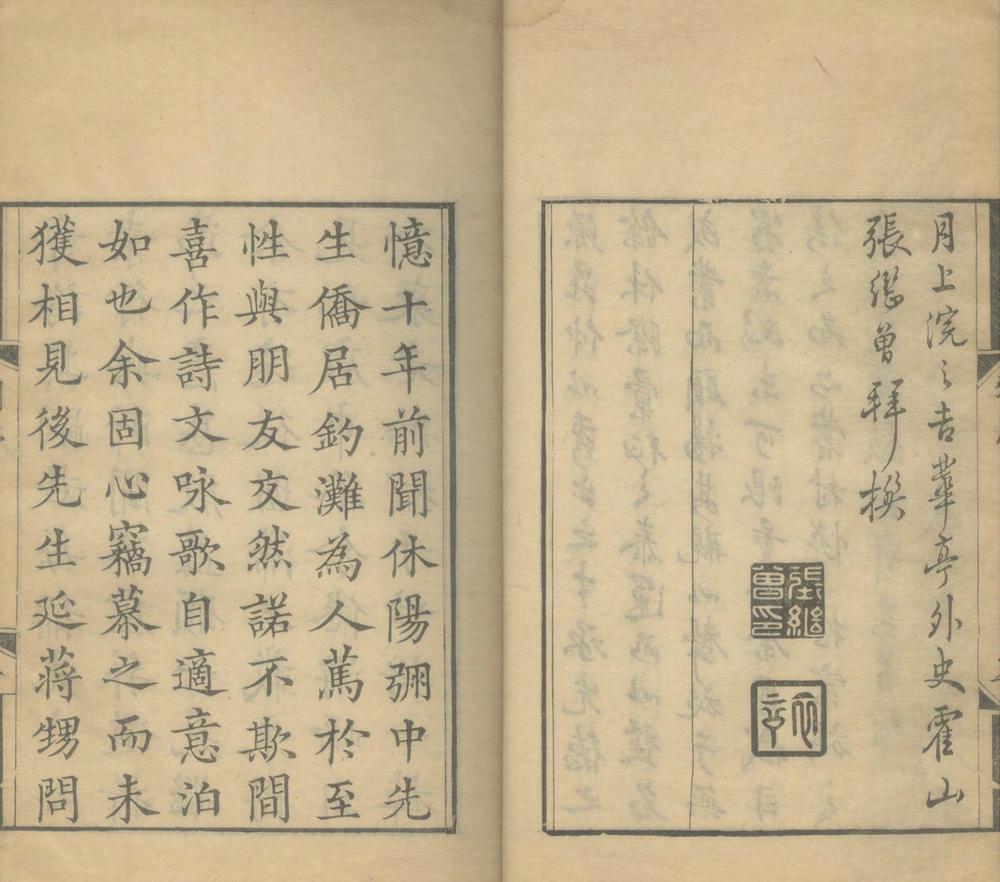 月上浣之吉華亭外史霍山
張繼曾拜撰
張繼曾印
憶十年前聞休陽弸中先
生僑居釣灘為人篤於至
性與朋友交然諾不欺間
喜作詩文咏歌自適意泊
如也余固心竊慕之而未
獲相見後先生延蔣甥問